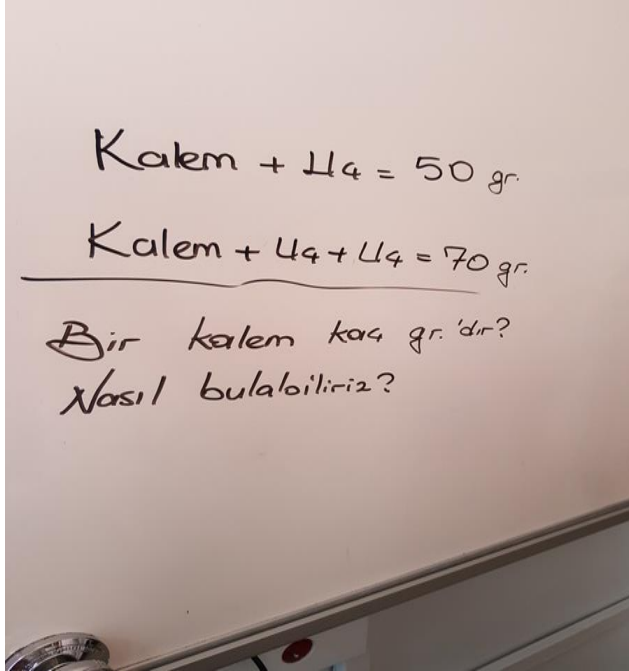 Kalem + Uç = 50 gr.
Kalem + Uç + Uç = 70 gr.
Bir kalem kaç gr.'dır?
Nasıl bulabiliriz?